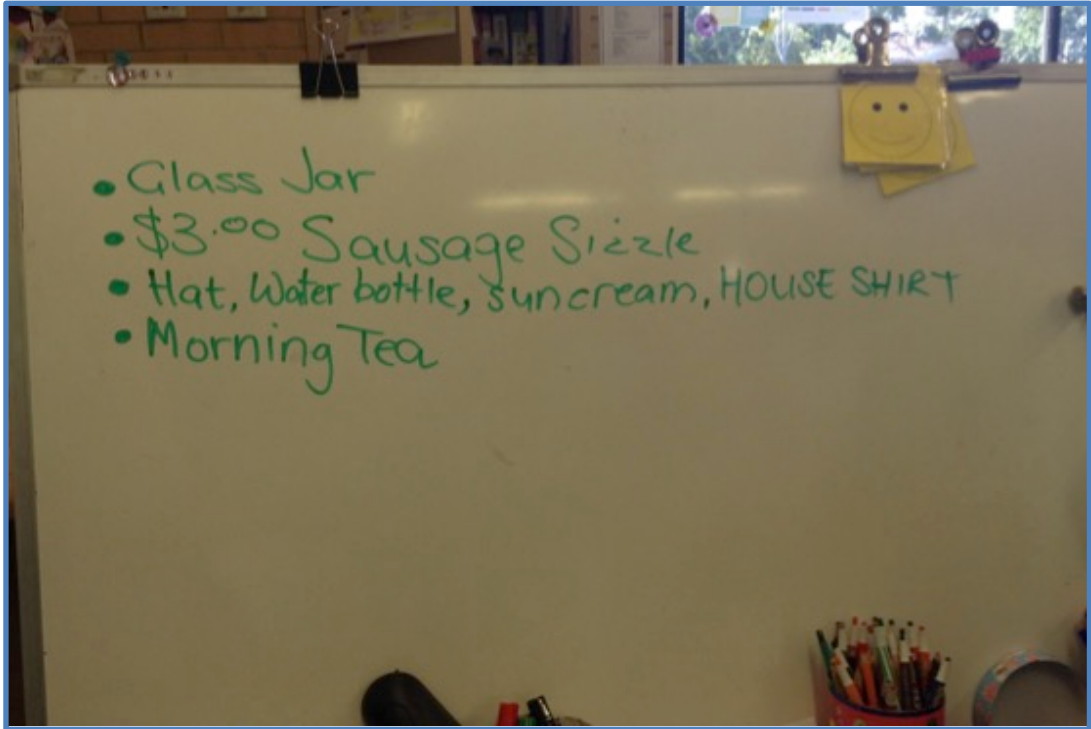 • Glass Jar
• $3.00 Sausage Sizzle
• Hat, Water bottle, suncream, HOUSE SHIRT
• Morning Tea